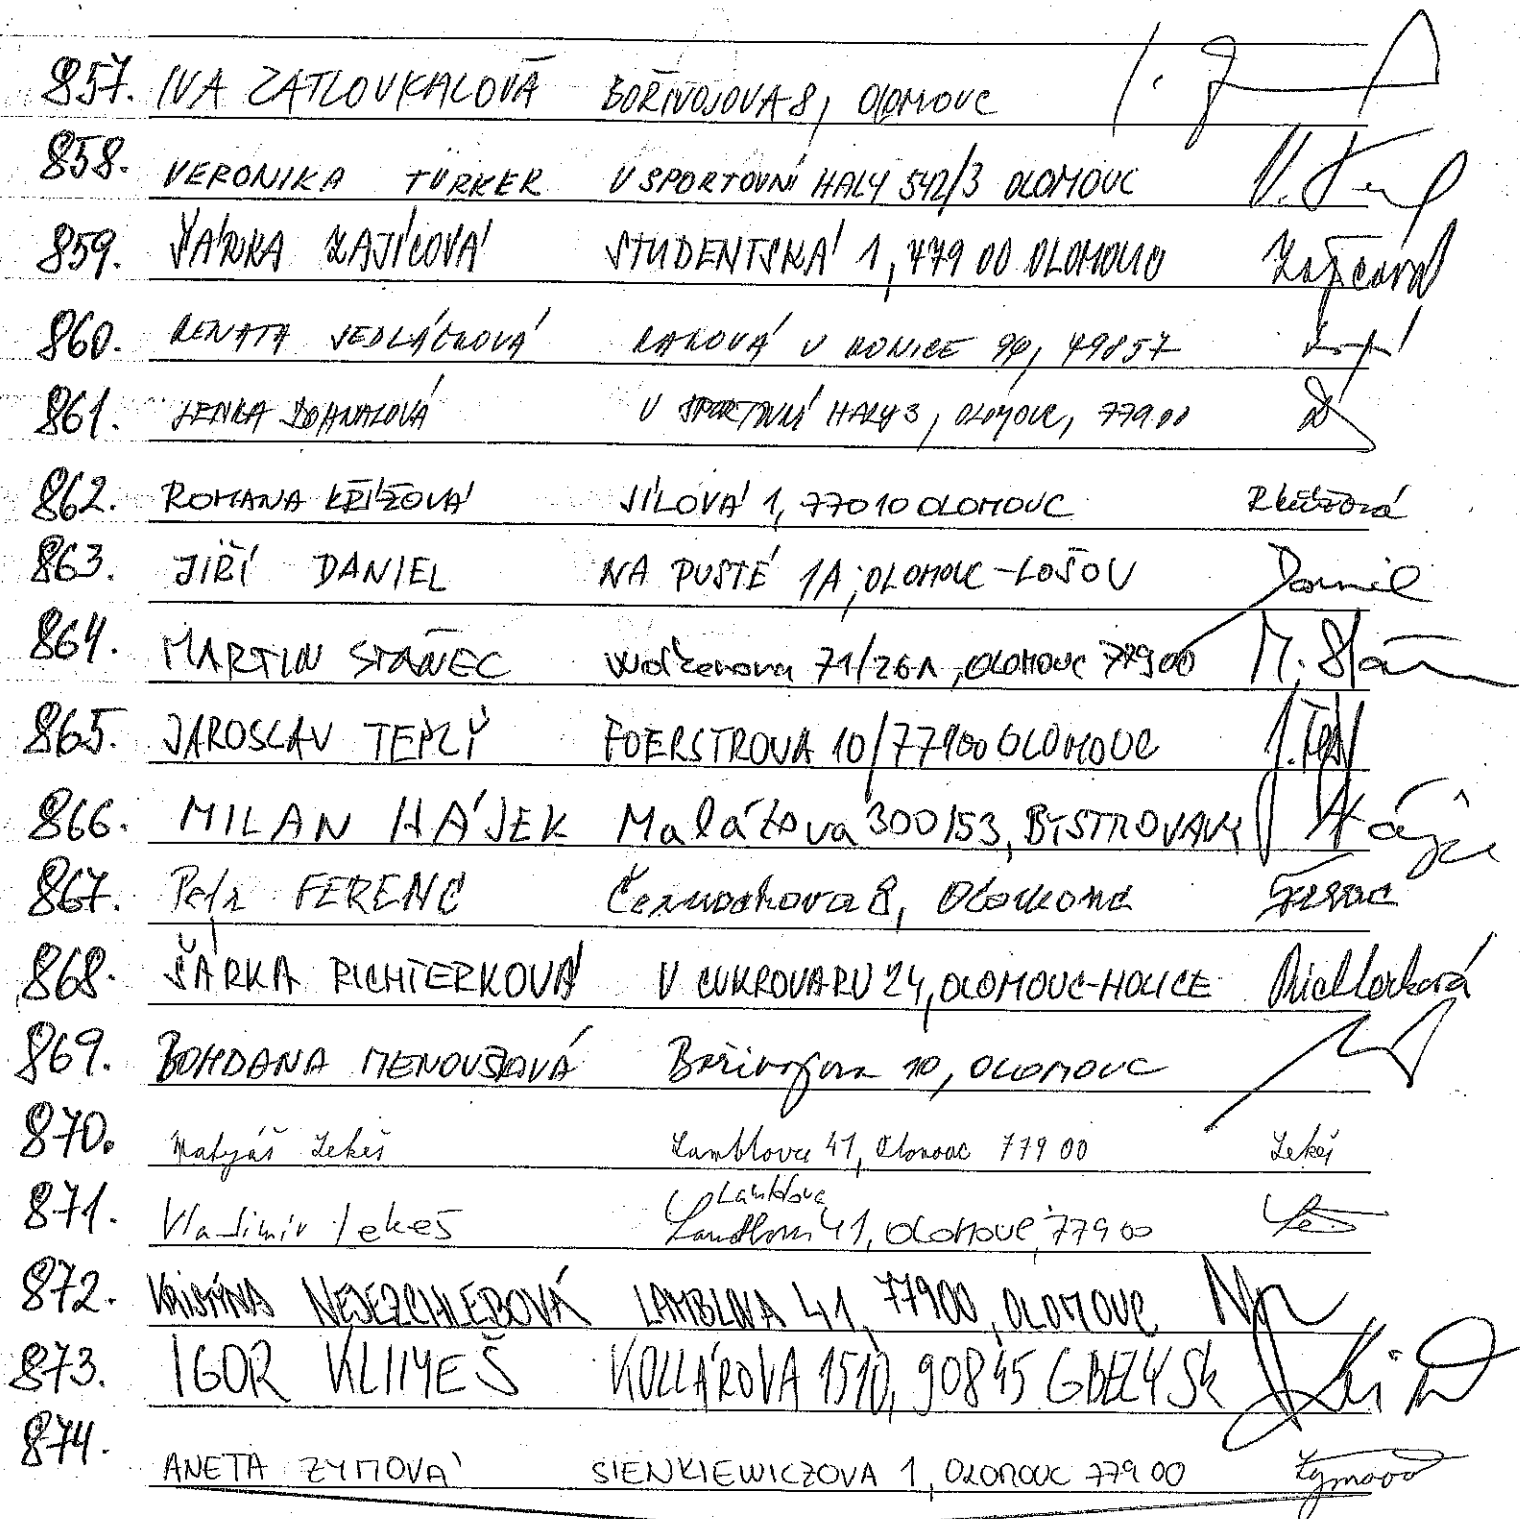 857. IVA ZATLOUKALOVÁ BOŘIVOJOVA 8, OLOMOUC
858. VERONIKA TÜRKER U SPORTOVNÍ HALY 542/3 OLOMOUC
859. ŠÁRKA ZAJÍCOVÁ STUDENTSKÁ 1, 779 00 OLOMOUC Zajícová
860. RENATA JEDLÁČKOVÁ RAKOVÁ U KONICE 94, 49857
861. LENKA DOHNALOVÁ U SPORTOVNÍ HALY 3, OLOMOUC, 779 00
862. ROMANA KŘÍŽOVÁ JÍLOVÁ 1, 77010 OLOMOUC RKřížová
863. JIŘÍ DANIEL NA PUSTÉ 1A, OLOMOUC-LOŠOV Daniel
864. MARTIN STANĚC 71/26A, OLOMOUC 77900 M.
865. JAROSLAV TEPLÝ FOERSTROVA 10/77900 OLOMOUC J.
866. MILAN HÁJEK Malátova 300/53, BYSTROVANY Hájek
867. Petr FERENC Černochova 8, Olomouc Ferenc
868. ŠÁRKA RICHTERKOVÁ V CUKROVARU 24, OLOMOUC-HOLICE Richterková
869. BOHDANA Bořivojova 10, OLOMOUC
870. Matyáš Lekeš Lamblova 41, Olomouc 779 00 Lekeš
871. Vladimír Lekeš Lamblova 41, OLOMOUC, 779 00
Lamblova
872. KRISTÝNA NEJEZCHLEBOVÁ LAMBLOVA 41, 77900, OLOMOUC
873. IGOR KLIMEŠ KOLLÁROVA 1510, 90845 GBELY SK
874. ANETA ZYMOVÁ SIENKIEWICZOVA 1, OLOMOUC 779 00 Zymová